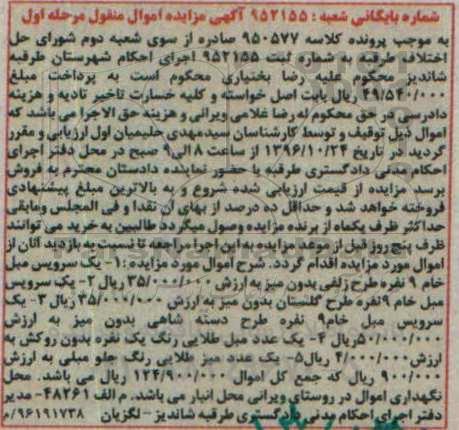 شماره بایگانی شعبه : ۹۵۲۱۵۵ آگهی مزایده اموال منقول مرحله اول
به موجب پرونده کلاسه ۹۵۰۵۷۷ صادره از سوی شعبه دوم شورای حل
اختلاف طرقبه به شماره ثبت ۹۵۲۱۵۵ اجرای احکام شهرستان طرقبه
شاندیز محکوم علیه رضا بختیاری محکوم است به پرداخت مبلغ
۴۹/۵۴۰/۰۰۰ ریال بابت اصل خواسته و کلیه خسارت تاخیر تادیه و هزینه
دادرسی در حق محکوم له رضا غلامی ویرانی و هزینه حق الاجرا می باشد که
اموال ذیل توقیف و توسط کارشناسان سیدمهدی حلیمیان اول ارزیابی و مقرر
گردید در تاریخ ۱۳۹۶/۱۰/۲۴ از ساعت ۸ الی۹ صبح در محل دفتر اجرای
احکام مدنی دادگستری طرقبه با حضور نماینده دادستان محترم به فروش
برسد مزایده از قیمت ارزیابی شده شروع و به بالاترین مبلغ پیشنهادی
فروخته خواهد شد و حداقل ده درصد از بهای آن نقدا و فی المجلس ومابقی
حداکثر ظرف یکماه از برنده مزایده وصول میگردد طالبین به خرید می توانند
ظرف پنج روز قبل از موعد مزایده به این اجرا مراجعه تا نسبت به بازدید آنان از
اموال مورد مزایده اقدام گردد. شرح اموال مورد مزایده :۱- یک سرویس مبل
خام ۹ نفره طرح زلفی بدون میز به ارزش ۳۵/۰۰۰/۰۰۰ ریال ۲- یک سرویس
مبل خام ۹نفره طرح گلستان بدون میز به ارزش ۳۵/۰۰۰/۰۰۰ ریال ۳- یک
سرویس مبل خام۹ نفره طرح دسته شاهی بدون میز به ارزش
۵۰/۰۰۰/۰۰۰ریال ۴- یک عدد مبل طلایی رنگ یک نفره بدون روکش به
ارزش۴/۰۰۰/۰۰۰ ریال۵- یک عدد میز طلایی رنگ جلو مبلی به ارزش
۹۰۰/۰۰۰ ریال که جمع کل اموال ۱۲۴/۹۰۰/۰۰۰ ریال می باشد. محل
نگهداری اموال در روستای ویرانی محل انبار می باشد. م الف ۴۸۲۶۱- مدیر
دفتر اجرای احکام مدنی دادگستری طرقبه شاندیز -لگزیان ۹۶۱۹۱۷۳۸/م